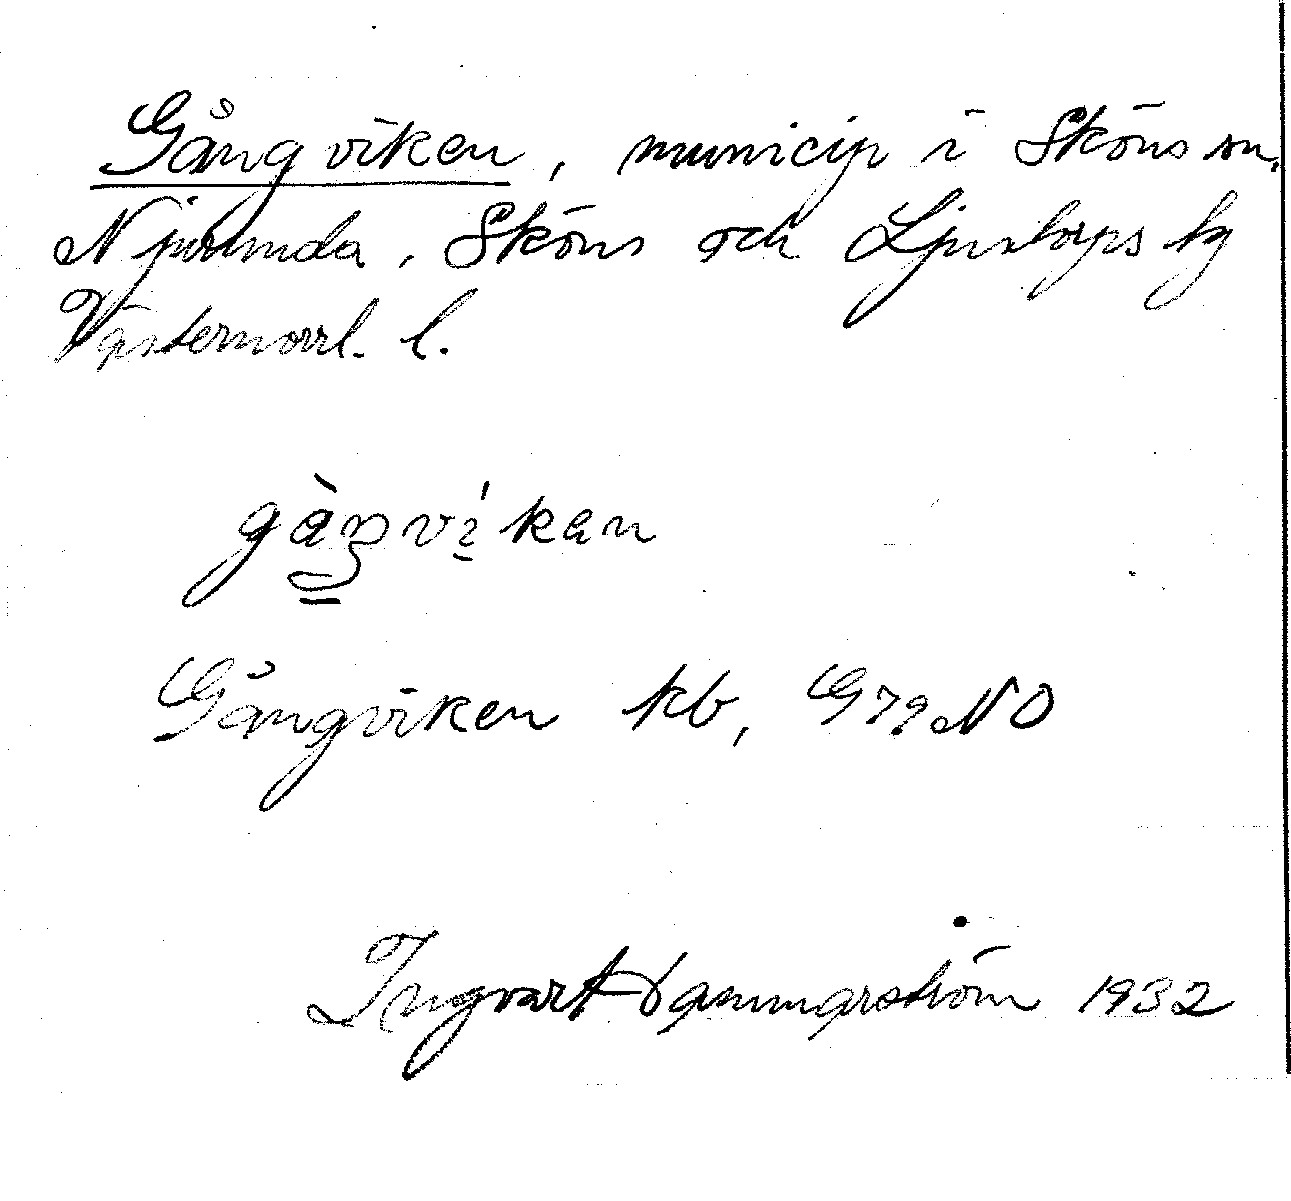 Gångviken, municip i Sköns sn.
Njurunda, Sköns och Ljustorps tg
Västernorrl. l.
gàŋví̱kan
Gångviken kb, G79NO
Ingvar Hammarström 1932